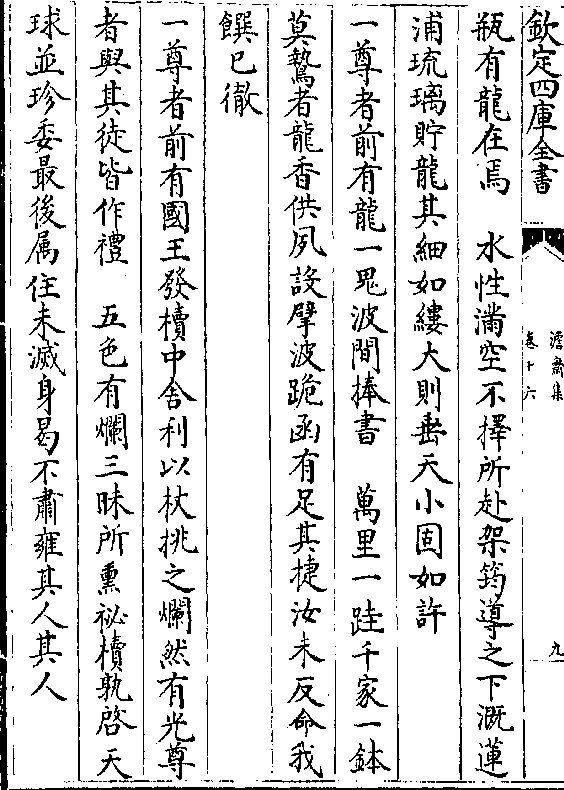 欽定四庫全書
澹齋集
卷十六
九
瓶有龍在焉 水性滿空不擇所赴架筠導之下溉蓮
浦琉璃貯龍其細如縷大則垂天小固如許
一尊者前有龍一鬼波間捧書 萬里一跬千家一鉢
莫鷙者龍香供夙設擘波跪函有足其捷汝未反命我
饌已徹
一尊者前有國王發櫝中舍利以杖挑之爛然有光尊
者與其徒皆作禮 五色有爛三昧所熏祕櫝孰啓天
球並珍委最後属住未滅身曷不肅雍其人其人